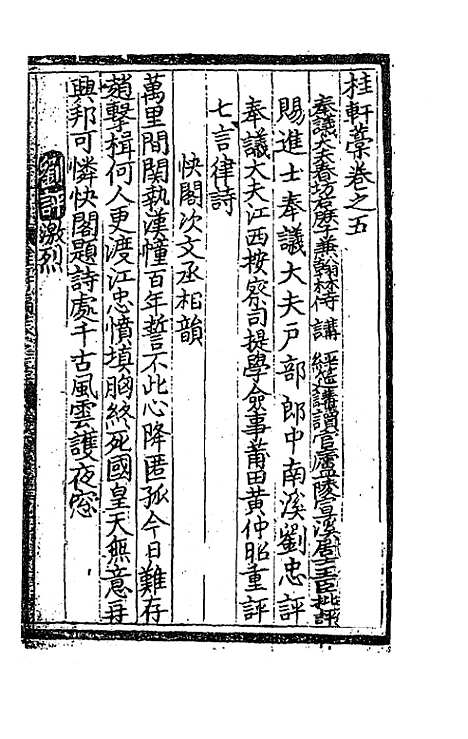 桂軒藁卷之五
奉議大夫春坊右庶子兼翰林侍講 經筵講讀官廬陵宣溪居士王臣批評
賜進士奉議大夫戶部郎中南溪劉忠評
奉議大夫江西按察司提學僉事莆田黃仲昭重評
七言律詩
快閣次文丞相韻
萬里間關執漢幢百年誓不此心降匿孤今日難存
趙擊楫何人更渡江忠憤填胸終死國皇天無意再
興邦可憐快閣題詩處千古風雲護夜窓
劉評激烈